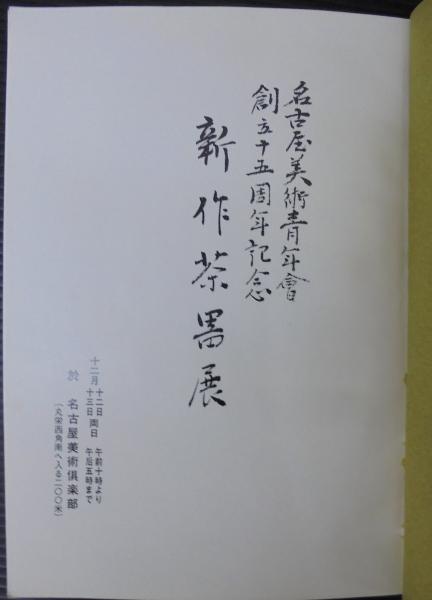 名古屋美術青年會
創立十五周年記念
新作茶器展
十二月 十二日 十三日 両日 午前十時より 午后五時まで
於 名古屋美術倶楽部
(丸栄西角南へ入る二〇〇米)